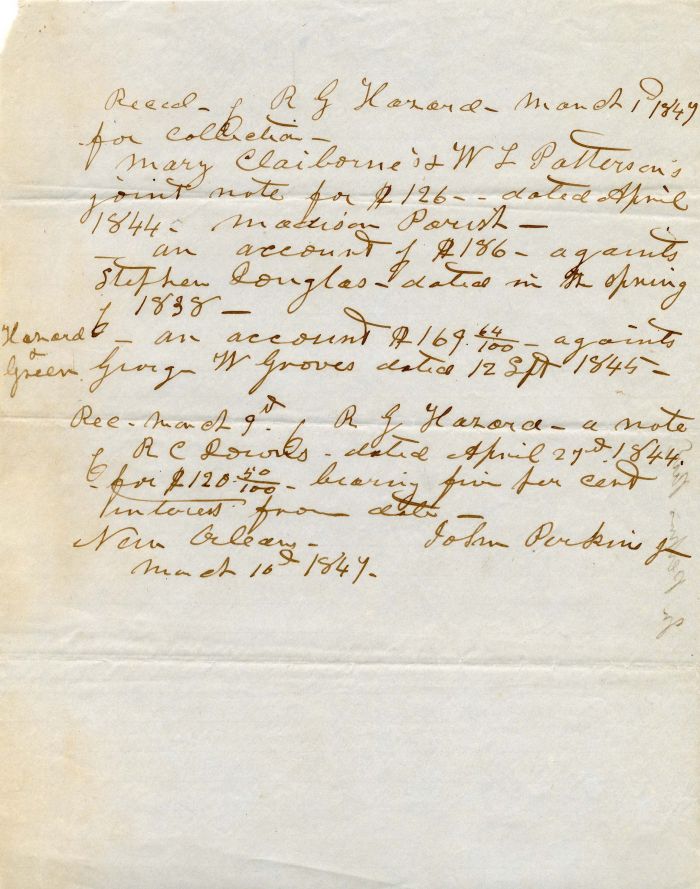 Reced - of R G Hazard - March 1st 1847
for collection -
Mary Claiborne's & W L Patterson's
joint note for $126 - - dated April
1844 - Madison Parish -
- an account of $186 - againts
Stephen Douglas - dated in the spring
of 1838 -
Hazard & Green - an account $169 64/100 - againts
George W Groves dated 12 Sept 1845 -
Rec - March 9th of R G Hazard - a note
of R C Downs - dated April 27th 1844.
- for $120 50/100 - bearing five per cent
interess from date -
New Orleans - John Perkins Jr
March 10th 1847 -